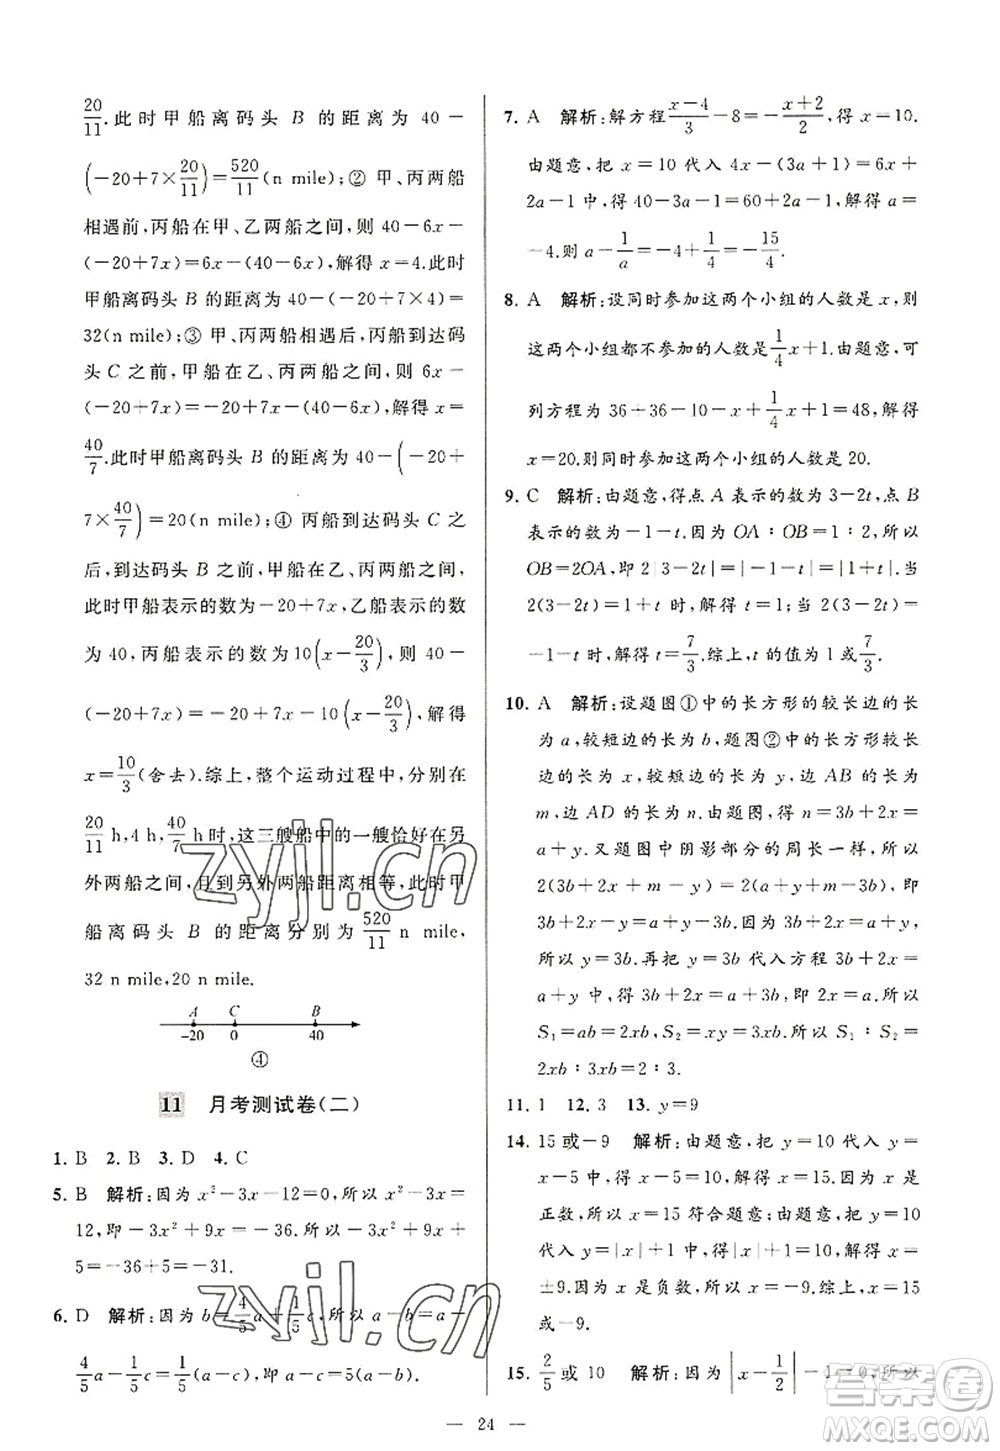 20/11.此时甲船离码头 B 的距离为 40－
(－20＋7×20/11)＝520/11(n mile);② 甲、丙两船
相遇前,丙船在甲、乙两船之间,则 40－6x－
(－20＋7x)＝6x－(40－6x),解得 x＝4.此时
甲船离码头 B 的距离为 40－(－20＋7×4)＝
32(n mile);③ 甲、丙两船相遇后,丙船到达码
头 C 之前,甲船在乙、丙两船之间,则 6x－
(－20＋7x)＝－20＋7x－(40－6x),解得 x＝
40/7.此时甲船离码头 B 的距离为 40－(－20＋
7×40/7)＝20(n mile);④ 丙船到达码头 C 之
后,到达码头 B 之前,甲船在乙、丙两船之间,
此时甲船表示的数为－20＋7x,乙船表示的数
为 40,丙船表示的数为 10(x－20/3),则 40－
(－20＋7x)＝－20＋7x－10(x－20/3),解得
x＝10/3(舍去).综上,整个运动过程中,分别在
20/11 h,4 h,40/7 h时,这三艘船中的一艘恰好在另
外两船之间,且与另外两船距离相等,此时甲
船离码头 B 的距离分别为 520/11 n mile,
32 n mile,20 n mile.
A C B
－20 0 40
④
11 月考测试卷(二)
1. B 2. B 3. D 4. C
5. B 解析:因为 x²－3x－12＝0,所以 x²－3x＝
12,即－3x²＋9x＝－36.所以－3x²＋9x＋
5＝－36＋5＝－31.
6. D 解析:因为 b＝4/5a＋1/5c,所以 a－b＝a－
4/5a－1/5c＝1/5(a－c),所以 a－c＝5(a－b).
7. A 解析:解方程 x－4/3－8＝－x＋2/2,得 x＝10.
由题意,把 x＝10 代入 4x－(3a＋1)＝6x＋
2a－1 中,得 40－3a－1＝60＋2a－1,解得 a＝
－4.则 a－1/a＝－4＋1/4＝－15/4.
8. A 解析:设同时参加这两个小组的人数是 x,则
这两个小组都不参加的人数是1/4x＋1.由题意,可
列方程为 36＋36－10－x＋1/4x＋1＝48,解得
x＝20.则同时参加这两个小组的人数是 20.
9. C 解析:由题意,得点 A 表示的数为 3－2t,点 B
表示的数为－1－t.因为 OA∶OB＝1∶2,所以
OB＝2OA,即 2|3－2t|＝|－1－t|.所以当
2(3－2t)＝1＋t 时,解得 t＝1;当 2(3－2t)＝
－1－t 时,解得 t＝7/3.综上,t 的值为 1 或7/3.
10. A 解析:设题图①中的长方形的较长边的长
为 a,较短边的长为 b,题图②中的长方形较长
边的长为 x,较短边的长为 y,边 AB 的长为
m,边 AD 的长为 n.由题图,得 n＝3b＋2x＝
a＋x.又题图中阴影部分的周长一样,所以
2(3b＋2x＋m－y)＝2(a＋y＋x＋m),即
3b＋2x－y＝a＋y＋x.因为 3b＋2x＝a＋x,
所以 y＝3b.再把 y＝3b 代入方程 3b＋2x＝
a＋y 中,得 3b＋2x＝a＋3b,即 2x＝a.所以
S₁＝ab＝2xb,S₂＝xy＝3xb.所以 S₁∶S₂＝
2xb∶3xb＝2∶3.
11. 1 12. 3 13. y＝9
14. 15 或－9 解析:由题意,把 y＝10 代入 y＝
x－5 中,得 x－5＝10,解得 x＝15.因为 x 是
正数,所以 x＝15 符合题意;把 y＝10
代入 y＝|x|＋1 中,得|x|＋1＝10,解得 x＝
±9.因为 x 是负数,所以 x＝－9.综上,x＝15
或－9.
15. 2/5或 10 解析:因为|x－1/2|－1＝0,所以
— 24 —
zyjl.cn
zyjl.cn
答案圈
MXQE.COM